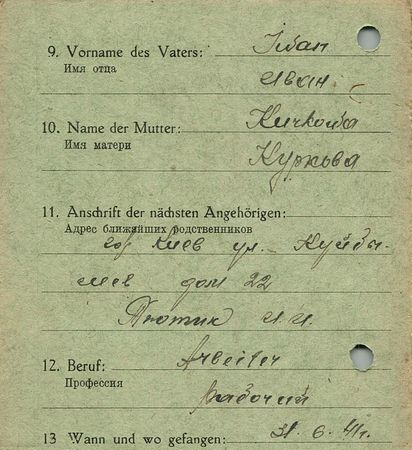 9. Vorname des Vaters: Iwan
Имя отца
Иван
10. Name der Mutter: Kurkowa
Имя матери
Куркова
11. Anschrift der nächsten Angehörigen:
Адрес ближайших родственников
гор Киев ул. Куйбы-
шев дом 22
И.И.
12. Beruf: Arbeiter
Профессия
Рабочий
13 Wann und wo gefangen: 31. 6. 41г.